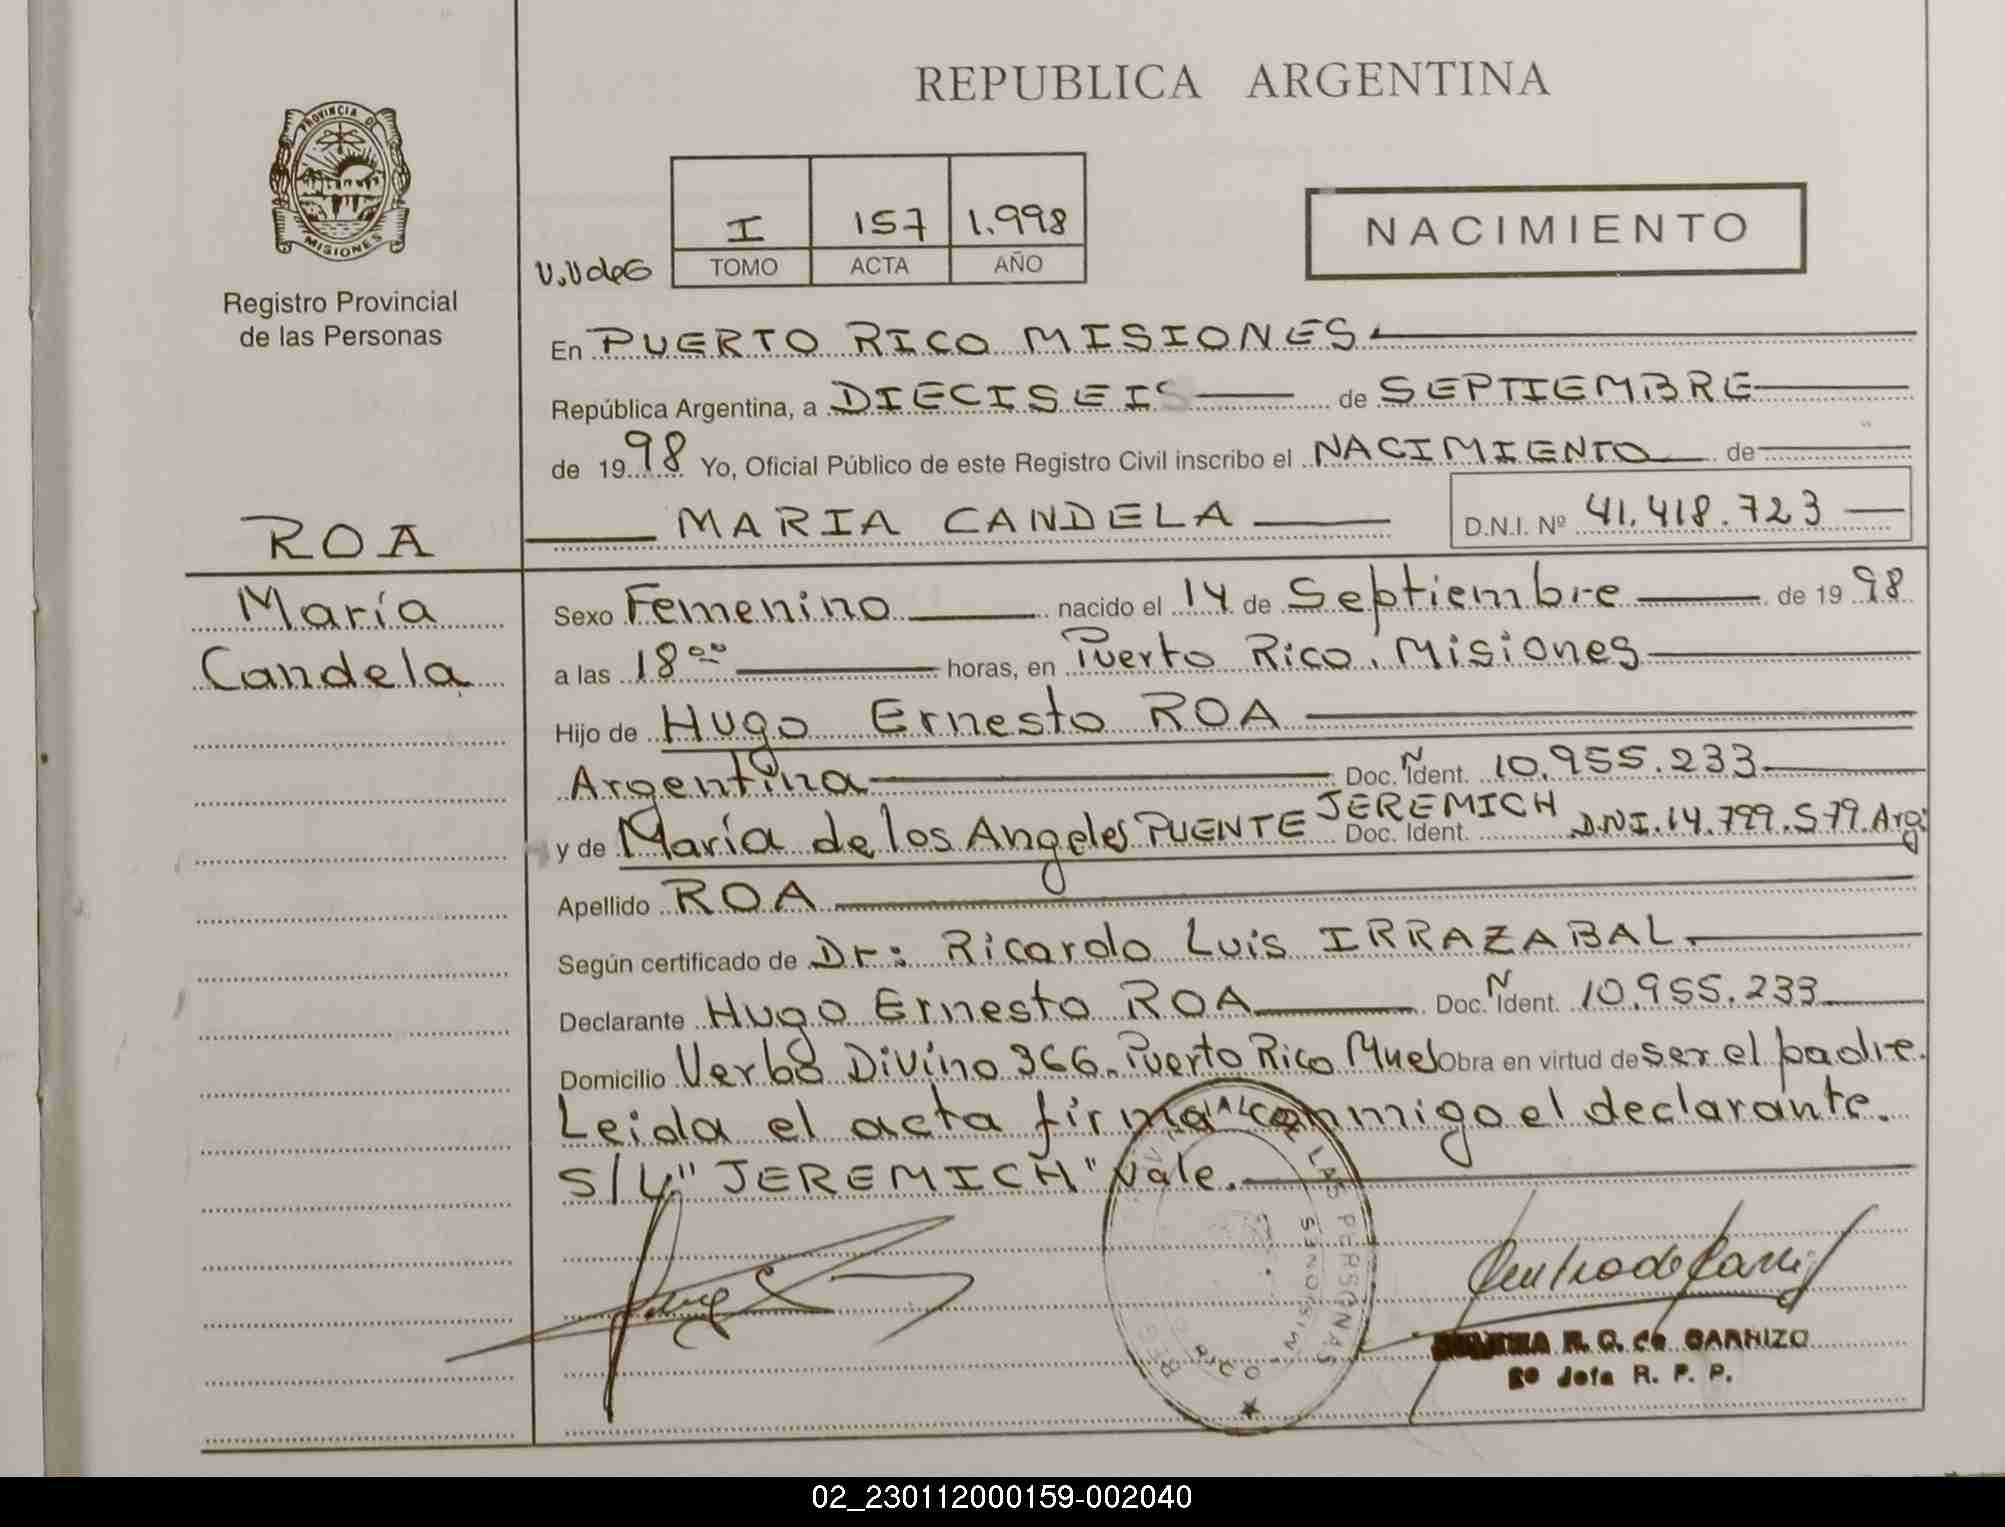 REPUBLICA ARGENTINA
PROVINCIA DE
MISIONES
Registro Provincial
de las Personas
I 157 1.998
TOMO ACTA AÑO
NACIMIENTO
En PUERTO RICO MISIONES
República Argentina, a DIECISEIS de SEPTIEMBRE
de 1998 Yo, Oficial Público de este Registro Civil inscribo el NACIMIENTO de
MARIA CANDELA D.N.I. Nº 41.418.723
ROA
María
Candela
Sexo Femenino nacido el 14 de Septiembre de 1998
a las 18 ºº horas, en Puerto Rico. Misiones
Hijo de Hugo Ernesto ROA
Argentina Doc. Ñ Ident. 10.955.233
y de María de los Angeles PUENTE JEREMICH Doc. Ident. DNI.14.799.579.Arg.
Apellido ROA
Según certificado de Dr: Ricardo Luis IRRAZABAL.
Declarante Hugo Ernesto ROA Doc. Ñ Ident. 10.955.233
Domicilio Verbo Divino 366. Puerto Rico Mnes Obra en virtud de ser el padre.
Leida el acta firma conmigo el declarante.
S/L "JEREMICH" Vale.
LAS PERSONAS
MISIONES
R. G. de GARRIZO
Jefa R. P. P.
02_230112000159-002040